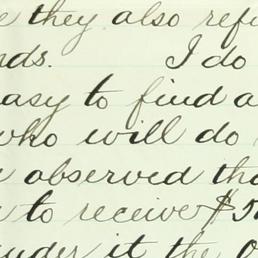 e they also refu
nds. I do
easy to find a
who will do
e observed tha
to receive $50
under it the o